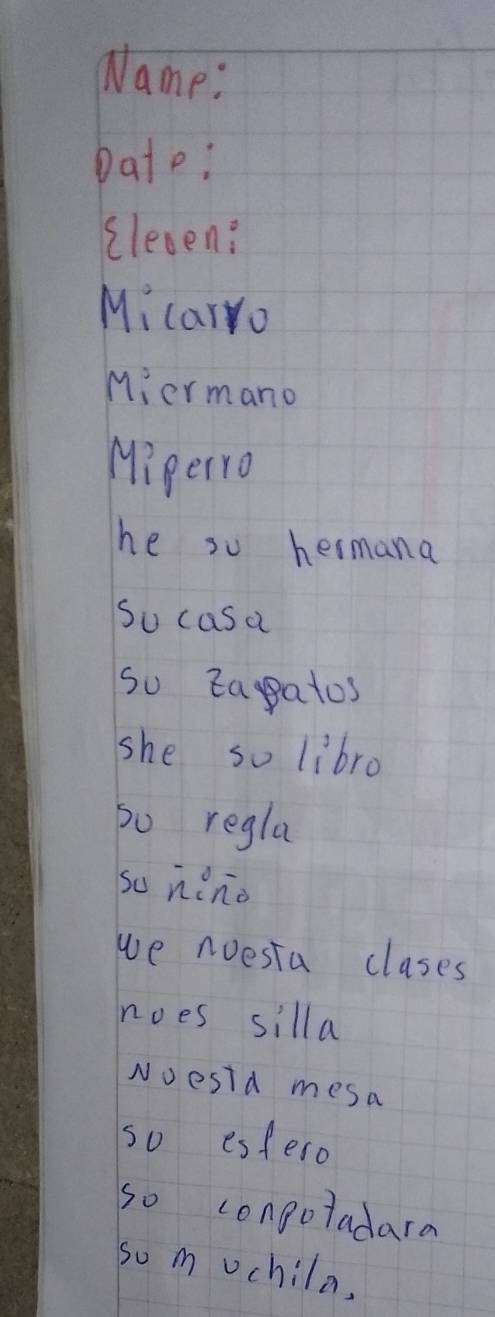 Name:
Date:
Eleven:
Micarro
Miermano
Miperro
he su hermana
su casa
su zapatos
she so libro
so regla
so niño
we nuesta clases
nues silla
Nuesta mesa
so esfero
so conpotadara
so mochila.